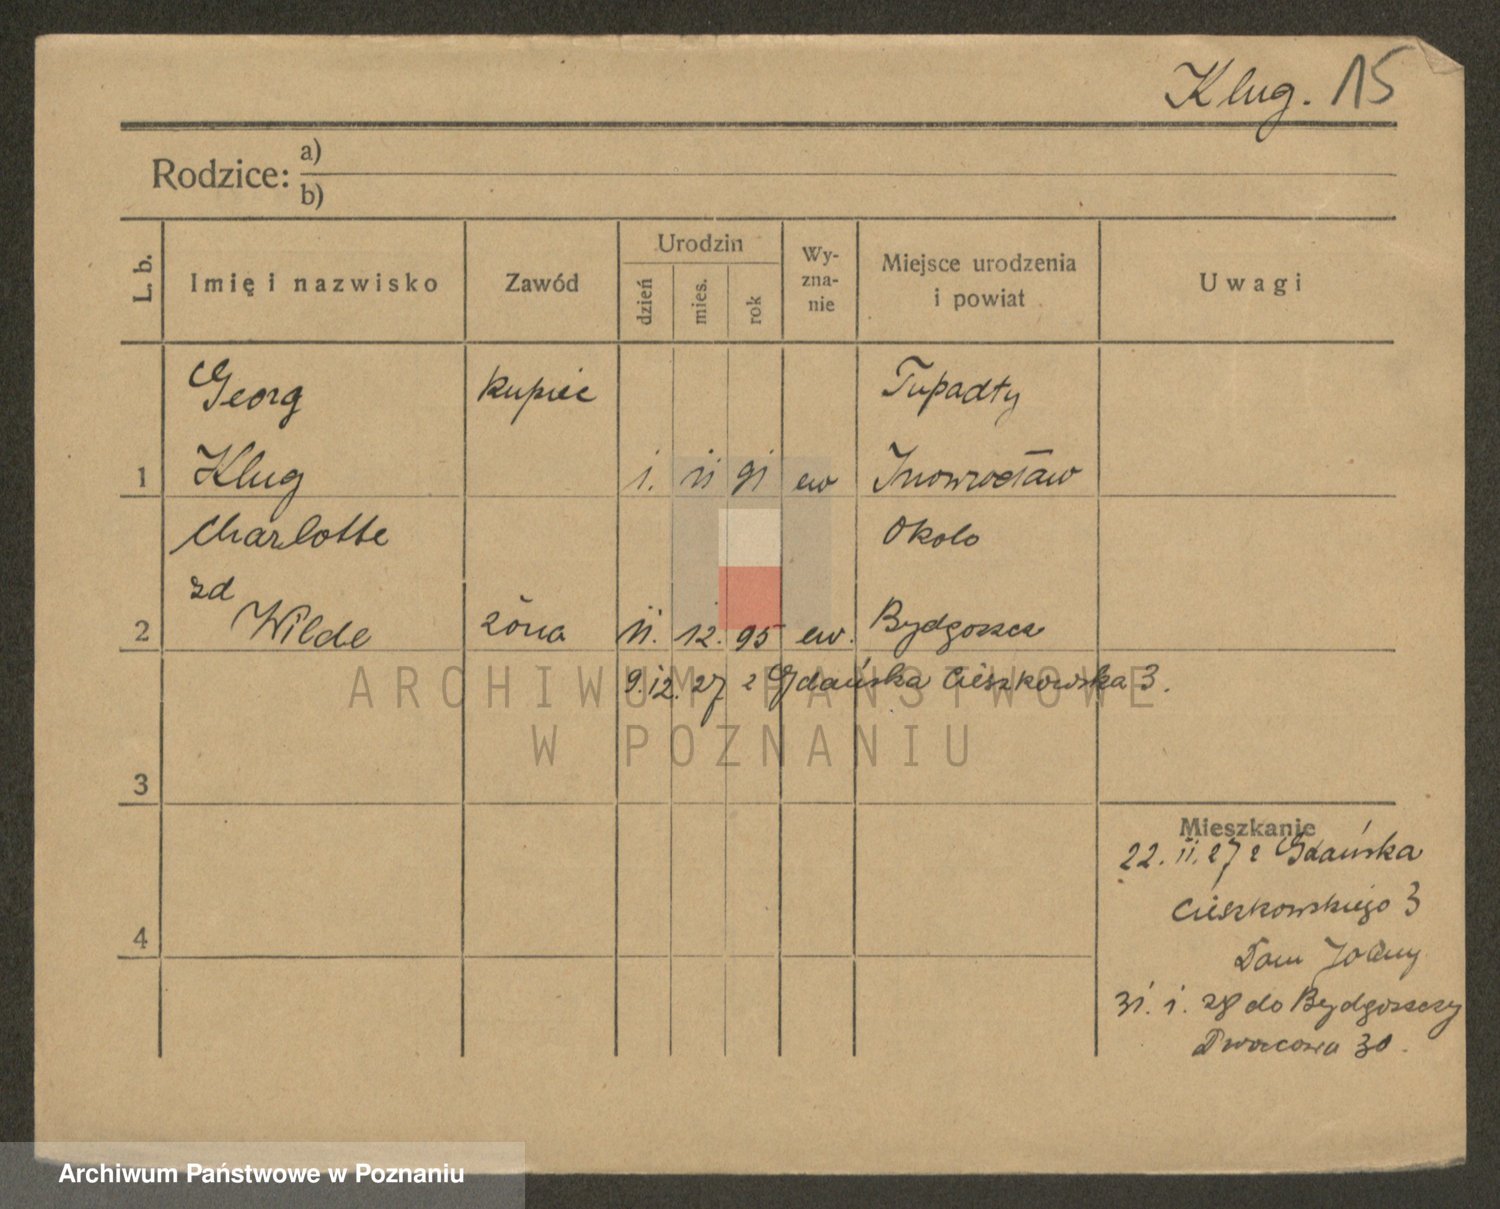 Klug. 15
Rodzice: a)
b)
L. b.
Imię i nazwisko
Zawód
Urodzin
dzień
mies.
rok
Wy-
zna-
nie
Miejsce urodzenia
i powiat
Uwagi
Georg kupiec Tupadty
1 Klug 1. 11 91 ew Inowrocław
Charlotte Okolo
zd
2 Wilde żona 11. 12. 95 ew. Bydgoszcz
9. 12. 27 z Gdańska Cieszkowska 3.
ARCHIWUM PAŃSTWOWE
W POZNANIU
3
Mieszkanie
22. 11. 27 z Gdańska
Cieszkowskiego 3
4
Dom
31. 1. 28 do Bydgoszczy
Dworcowa 30.
Archiwum Państwowe w Poznaniu